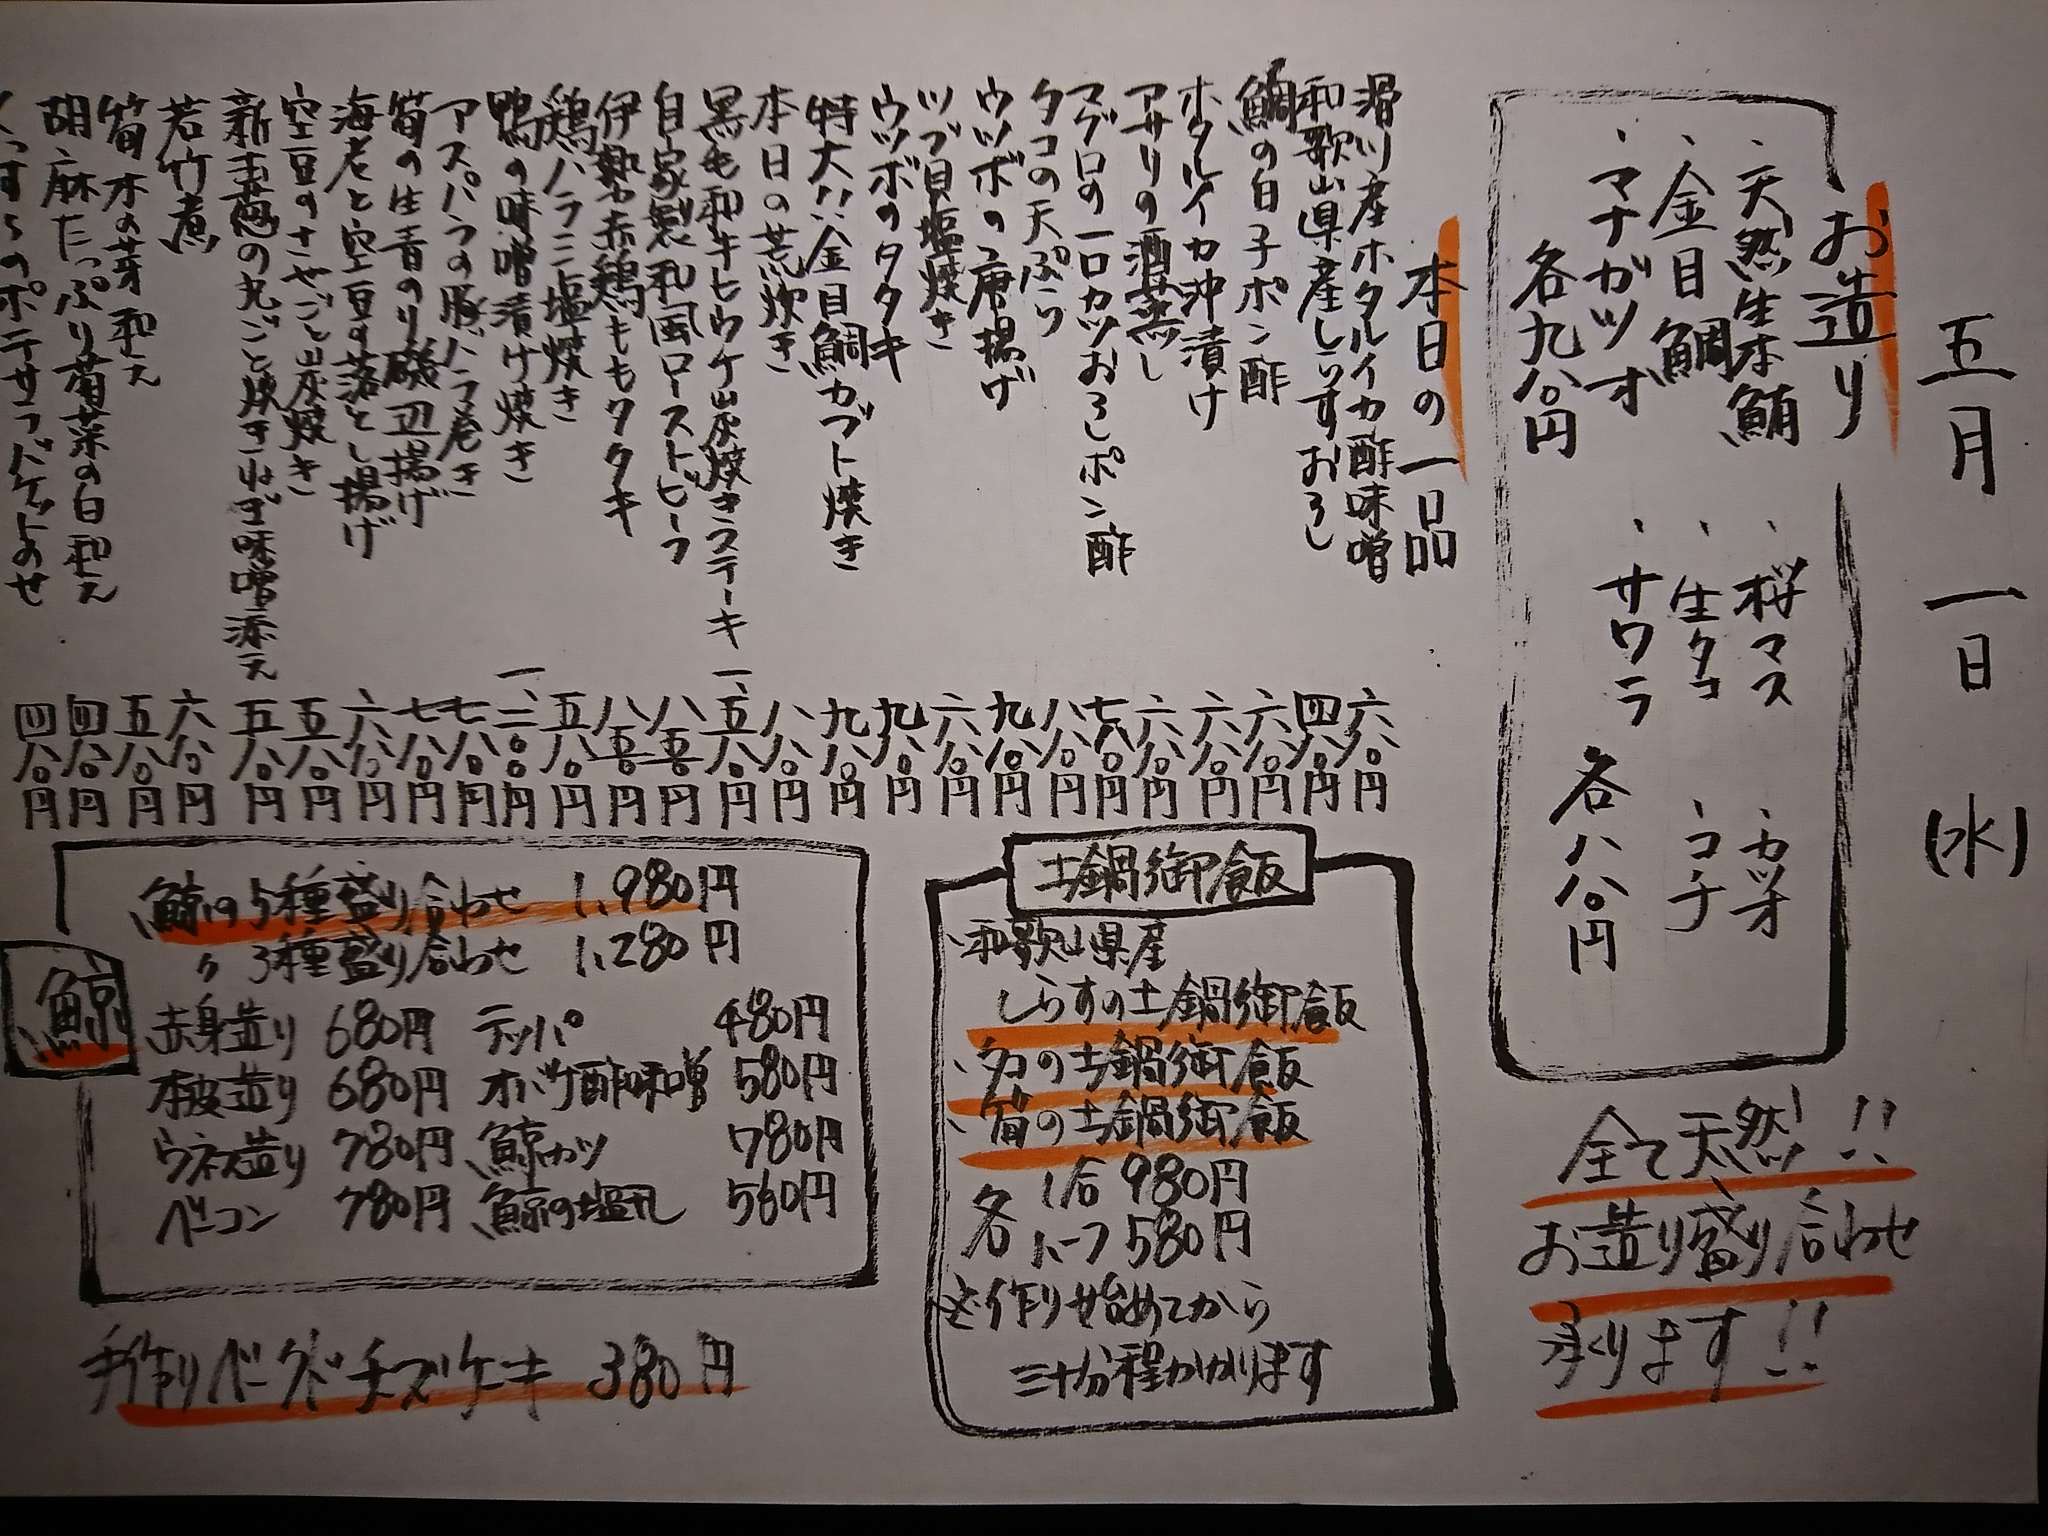 五月一日(水)
お造り
・天然生本鮪
・金目鯛
・マナガツオ
各九八〇円
・桜マス
・生タコ
・サワラ
・カツオ
・コチ
各八八〇円
全て天然!!
お造り盛り合わせ
承ります!!
本日の一品
滑川産ホタルイカ酢味噌 六八〇円
和歌山県産しらすおろし 四八〇円
鯛の白子ポン酢 六八〇円
ホタルイカ沖漬け 六八〇円
アサリの酒蒸し 六八〇円
マグロの一口カツおろしポン酢 七八〇円
タコの天ぷら 八八〇円
ウツボの唐揚げ 九八〇円
ツブ貝塩焼き 六八〇円
ウツボのタタキ 九八〇円
特大!!金目鯛カブト焼き 九八〇円
本日の荒炊き 八八〇円
黒毛和牛ヒウチ炭焼きステーキ 一、五八〇円
自家製和風ローストビーフ 八五〇円
伊勢赤鶏ももタタキ 八五〇円
鶏ハラミ塩焼き 五八〇円
鴨の味噌漬け焼き 一、二〇〇円
アスパラの豚バラ巻き 七八〇円
筍の生青のり磯辺揚げ 七八〇円
海老と空豆の落とし揚げ 六八〇円
空豆のさやごと炭焼き 五八〇円
新玉葱の丸ごと焼きねぎ味噌添え 五八〇円
若竹煮 六八〇円
筍木の芽和え 五八〇円
胡麻たっぷり菊菜の白和え 四八〇円
くずしのポテサラバゲットのせ 四八〇円
土鍋御飯
・和歌山県産
しらすの土鍋御飯
・タコの土鍋御飯
・筍の土鍋御飯
各 1合 980円
ハーフ 580円
※作り始めてから
三十分程かかります
鯨
鯨の5種盛り合わせ 1,980円
〃 3種盛り合わせ 1,280円
赤身造り 680円 テッパ 480円
本皮造り 680円 オバケ酢味噌 580円
ウネス造り 780円 鯨カツ 780円
ベーコン 780円 鯨の塩タレ 560円
手作りベークドチーズケーキ 380円